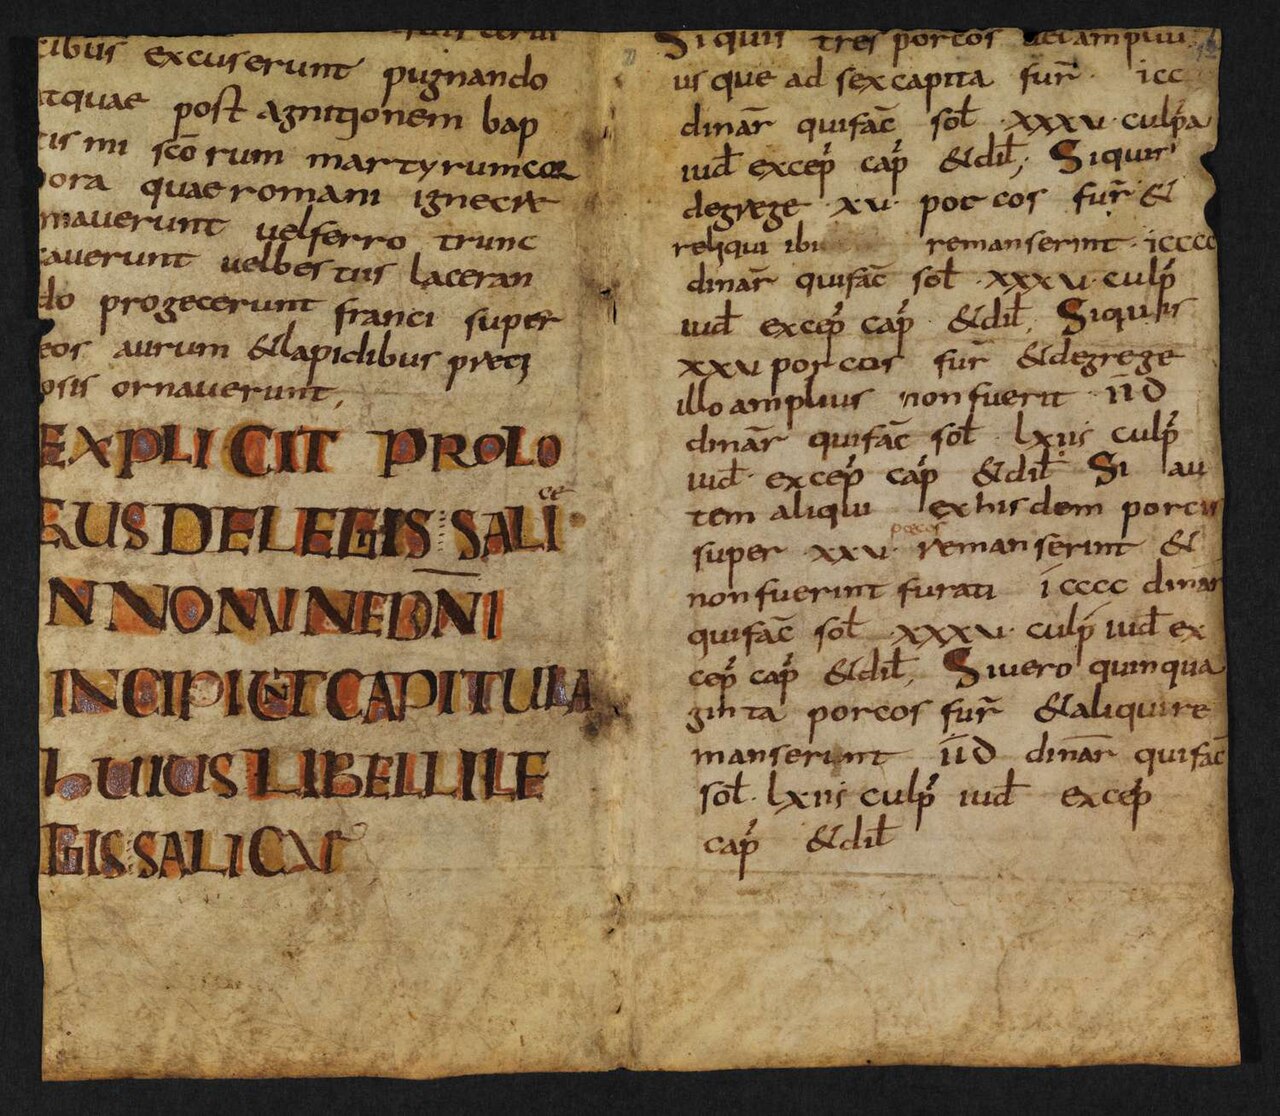 cibus excuserunt pugnando
atquae post agnitionem bap
tis mi scōrum martyrum cor
pora quae romani igne cre
mauerunt uel ferro trunc
cauerunt uel bestiis laceran
do progecerunt franci super
eos aurum & lapidibus preti
osis ornauerunt,
EXPLICIT PROLO
GUS DE LEGIS SALICE
IN NOMINE DNI
INCIPIUNT CAPITULA
HUIUS LIBELLI LE
GIS SALICAE
Si quis tres porcos uel amplius
usque ad sex capita fur̄ icc
dinar̄ qui fac̄ sol xxxu culp̄a
iud excep̄ cap̄ & dil; Si quis
de grege xu porcos fur̄ &
reliqui ibi remanserint icccc
dinar̄ qui fac̄ sol xxxu culp̄
iud excep̄ cap̄ & dil; Si quis
xxu porcos fur̄ & de grege
illo amplius non fuerit iid
dinar̄ qui fac̄ sol lxiis culp̄
iud excep̄ cap̄ & dil Si au
tem aliqui ex hisdem porcis
super xxu porcos remanserint &
non fuerint furati icccc dinar
qui fac̄ sol xxxu culp̄ iud ex
cep̄ cap̄ & dil; Si uero quinqua
ginta porcos fur̄ & aliqui re
manserint iid dinar̄ qui fac̄
sol lxiis culp̄ iud excep̄
cap̄ & dil